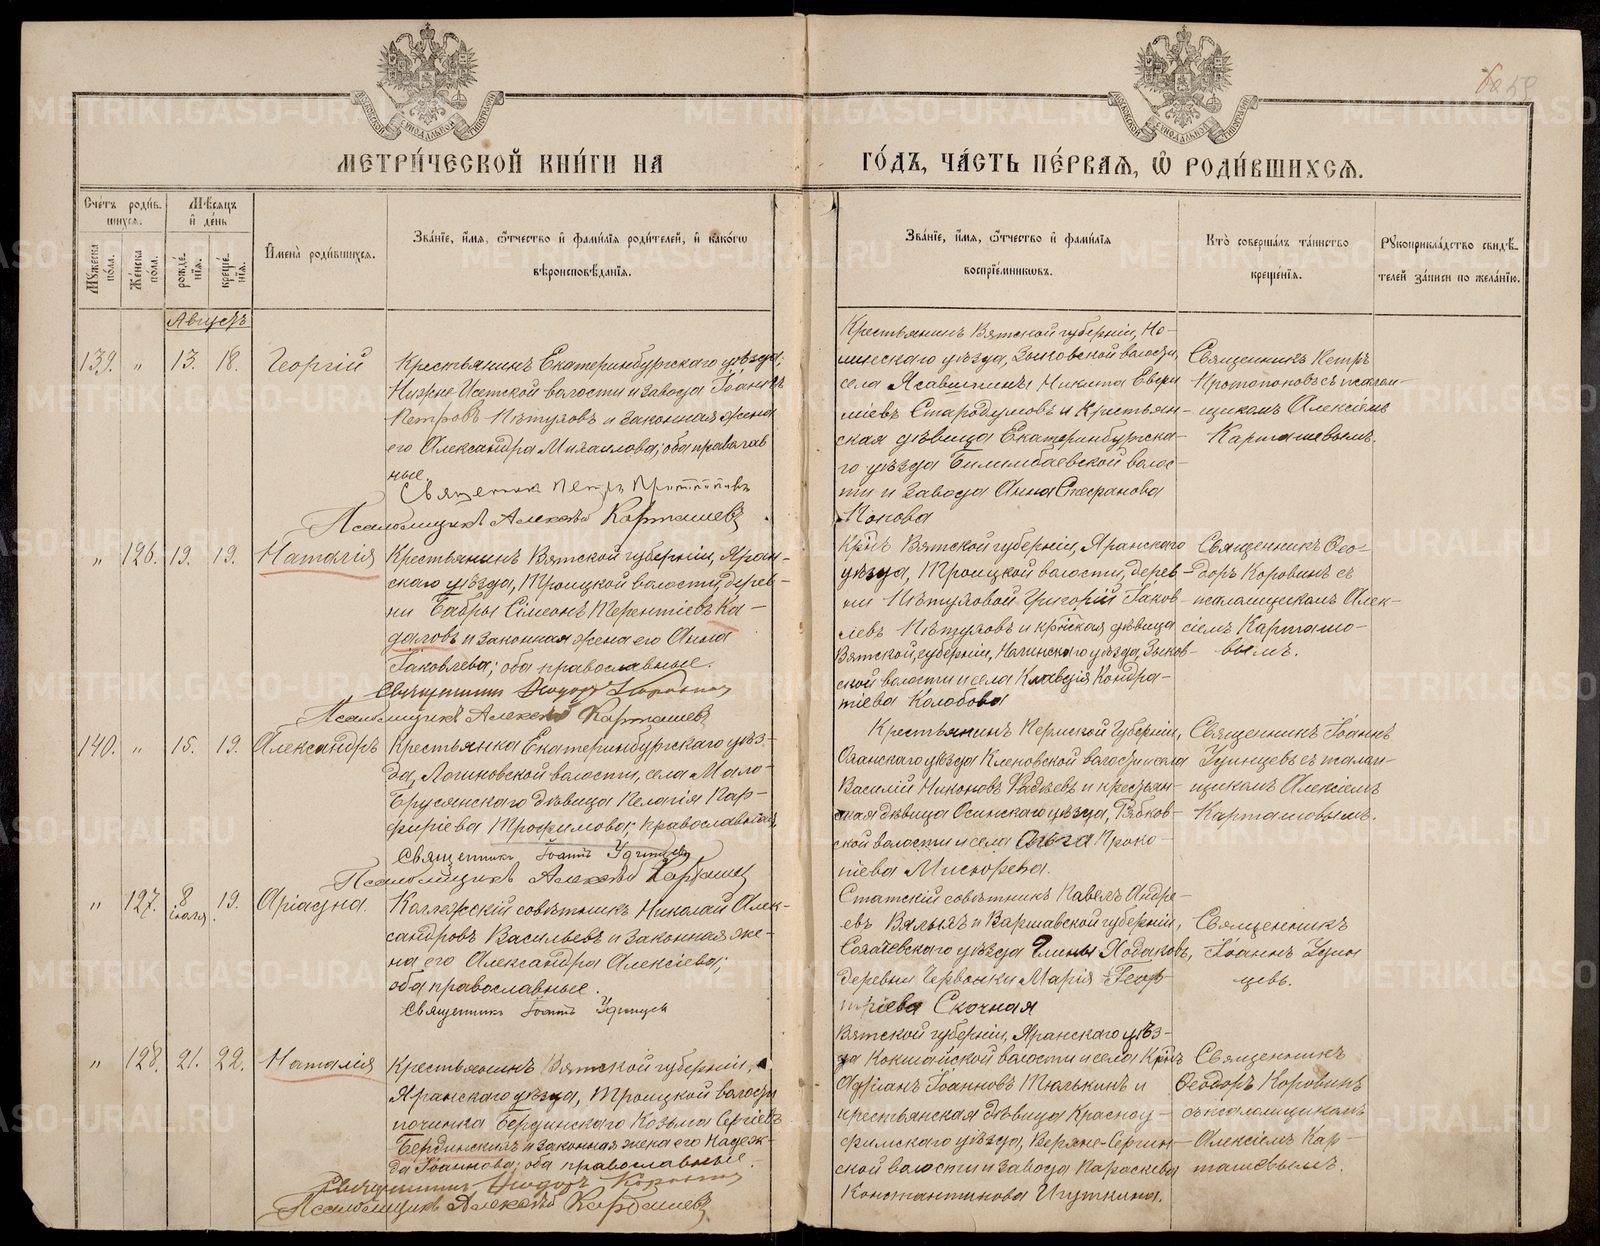 МЕТРИ́ЧЕСКОЙ КНИ́ГИ НА ГО́ДЪ, ЧА́СТЬ ПЕ́РВАЯ, Ѿ РОДИ́ВШИХСЯ.
Сче́тъ роди́в-
шихся.
Мѣ́сяцъ
и́ де́нь
Му́жеска по́ла.
Же́нска по́ла.
рожде́-
нія.
креще́-
нія.
И́мена̀ роди́вшихся.
Зва́ніе, и́мя, ѻ҆́тчество и́ фами́лія роди́телей, и́ како́гѡ
вѣроисповѣ́данія.
Зва́ніе, и́мя, ѻ҆́тчество и́ фами́лія
воспріе́мниковъ.
Кто̀ соверша́лъ та́инство
креще́нія.
Рꙋкоприкла́дство свидѣ́-
телей за́писи по жела́нію.
Августъ
139. " 13. 18. Георгій
Крестьянинъ Екатеринбургскаго уѣзда,
Нижне-Исетской волости и завода Іоаннъ
Петровъ Пѣтуховъ и законная жена
его Александра Михаилова; оба православ
ные.
Священникъ Петръ Протопоповъ
Псаломщикъ Алексѣй Карташевъ
Крестьянинъ Вятской губерніи, Но-
линскаго уѣзда, Зыковской волости,
села Никита Евси
піевъ Стародумовъ и Крестьян-
ская дѣвица Екатеринбургска-
го уѣзда Билимбаевской волос-
ти и завода Анна Стефанова
Попова
Священникъ Петръ
Протопоповъ съ псалом-
щикомъ Алексіемъ
Карташевымъ.
" 126. 19. 19. Наталія
Крестьянинъ Вятской губерніи, Яран-
скаго уѣзда, Троицкой волости, дерев-
ни Сімеонъ Терентіевъ Ка-
даловъ и законная жена его Анна
Іаковлева; оба православные.
Священникъ Ѳеодоръ Коровинъ
Псаломщикъ Алексѣй Карташевъ
Крнъ Вятской губерніи, Яранскаго
уѣзда, Троицкой волости, дерев-
ни Пѣтуховой Григорій Іаков-
левъ Пѣтуховъ и крнская дѣвица
Вятской губерніи, Нолинскаго уѣзда, Зыков-
ской волости и села Клавдія Кондра-
тіева Колобова
Священникъ Ѳео-
доръ Коровинъ съ
псаломщикомъ Алек-
сіемъ Карташе-
вымъ.
140. " 15. 19. Александръ
Крестьянка Екатеринбургскаго уѣз-
да, Логиновской волости, села Мало-
Брусянскаго дѣвица Пелагія Пор-
фиріева Трофимова; православная.
Священникъ Іоаннъ Удинцевъ
Псаломщикъ Алексѣй Карташевъ
Крестьянинъ Пермской губерніи,
Оханскаго уѣзда Кленовской волости и села
Василій Никоновъ Фадѣевъ и крестьян-
ская дѣвица Осинскаго уѣзда, Рябков-
ской волости и села Ольга Проко-
піева
Священникъ Іоаннъ
Удинцевъ съ псалом-
щикомъ Алексіемъ
Карташовымъ.
" 127. 8 Іюля 19. Аріадна.
Коллежскій совѣтникъ Николай Алек-
сандровъ Васильевъ и законная же-
на его Александра Алексіева;
оба православные.
Священникъ Іоаннъ Удинцевъ
Статскій совѣтникъ Павелъ Андре-
евъ Вялыхъ и Варшавской губерніи,
Сохачевскаго уѣзда Гмины
деревни Червонки Марія Геор-
гіева Скочная
Священникъ
Іоаннъ Удин
цевъ.
" 128. 21. 22. Наталія
Крестьянинъ Вятской губерніи,
Яранскаго уѣзда, Троицкой волости
починка Бердинскаго Козьма Сергіевъ
Бердинскихъ и законная жена его Надеж-
да Іоаннова; оба православные.
Священникъ Ѳеодоръ Коровинъ
Псаломщикъ Алексѣй Карташевъ
Вятской губерніи, Яранскаго уѣз-
да Кокшайской волости и села Крнъ
Адріанъ Іоанновъ Тюлькинъ и
крестьянская дѣвица Красноу-
фимскаго уѣзда, Верхне-Сергин-
ской волости и завода Параскева
Константинова Игуткина.
Священникъ
Ѳеодоръ Коровинъ
съ псаломщикомъ
Алексіемъ Кар-
ташевымъ.
METRIKI.GASO-URAL.RU